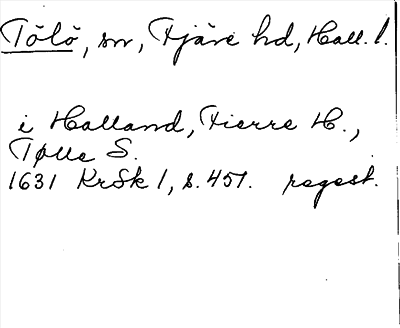 Tölö, sn, Fjäre hd, Hall. l.
i Halland, Fierre H.,
Tølle S.
1631 KrSk 1, s. 451. regest.